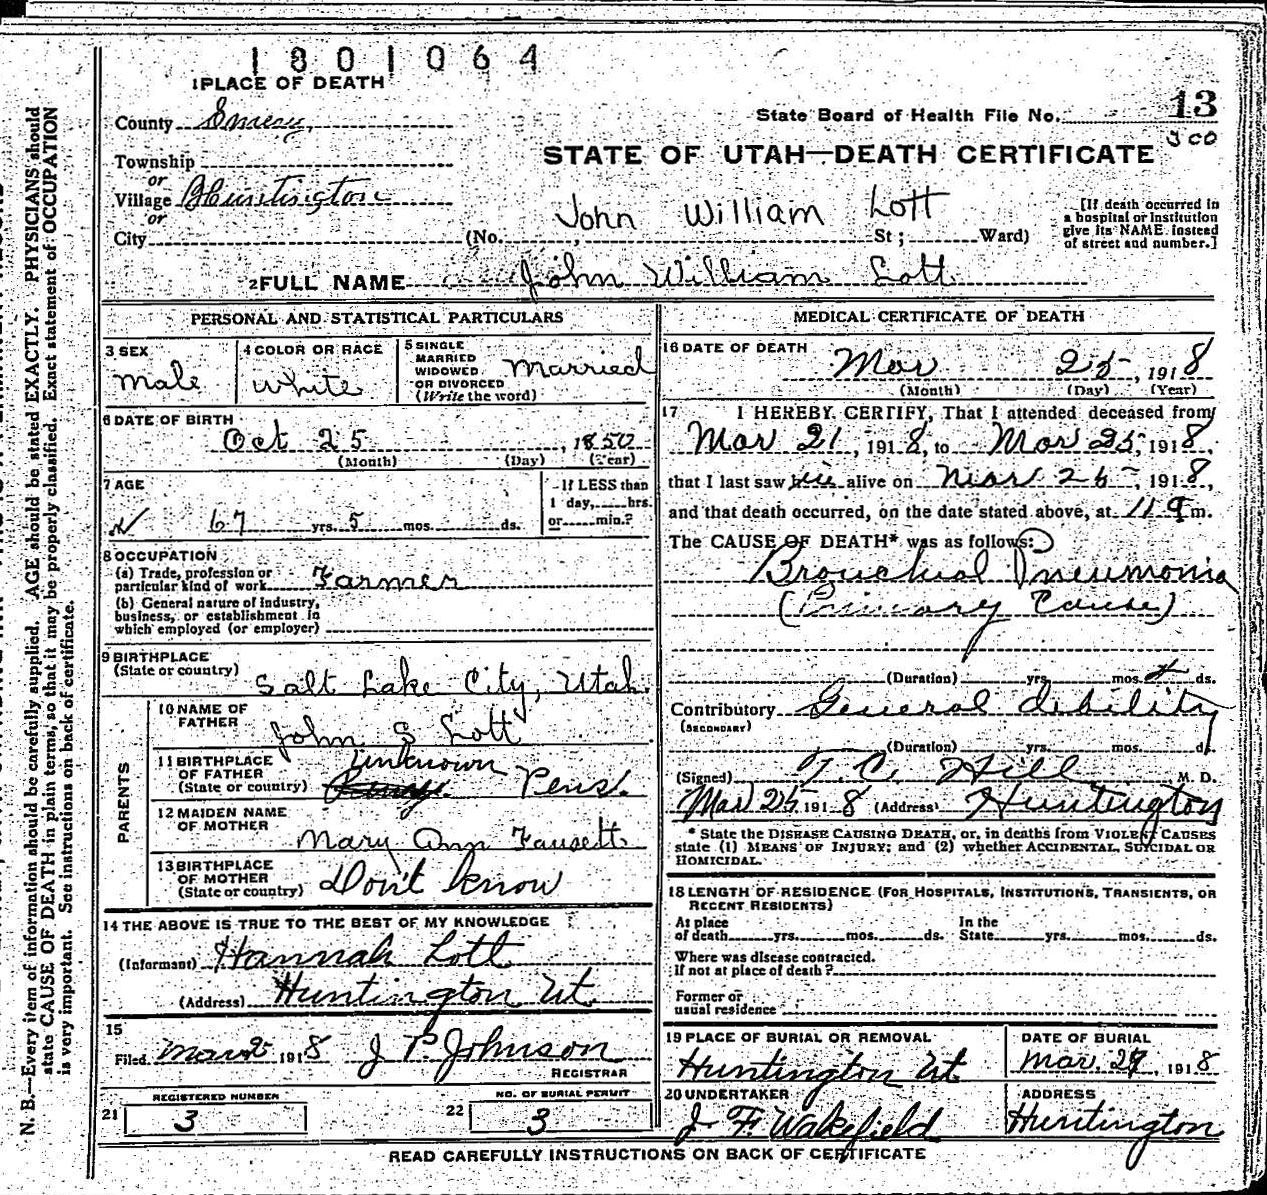 1801064
1 PLACE OF DEATH
County Emery,
State Board of Health File No. 13
300
Township
or
Village Huntington
or
City (No. , St ; Ward)
STATE OF UTAH—DEATH CERTIFICATE
John William Lott
[If death occurred in
a hospital or institution
give its NAME instead
of street and number.]
2 FULL NAME John William Lott
PERSONAL AND STATISTICAL PARTICULARS
3 SEX
Male
4 COLOR OR RACE
White
5 SINGLE
MARRIED
WIDOWED
OR DIVORCED
(Write the word)
Married
6 DATE OF BIRTH
Oct 25, 1850
(Month) (Day) (Year)
7 AGE
67 yrs. 5 mos. ds.
If LESS than
1 day, hrs.
or min.?
8 OCCUPATION
(a) Trade, profession or
particular kind of work Farmer
(b) General nature of industry,
business, or establishment in
which employed (or employer)
9 BIRTHPLACE
(State or country) Salt Lake City, Utah.
PARENTS
10 NAME OF
FATHER John S Lott
11 BIRTHPLACE
OF FATHER
(State or country) unknown Pens.
12 MAIDEN NAME
OF MOTHER Mary Ann Fausett
13 BIRTHPLACE
OF MOTHER
(State or country) Don't know
14 THE ABOVE IS TRUE TO THE BEST OF MY KNOWLEDGE
(Informant) Hannah Lott
(Address) Huntington Ut.
15
Filed 1918 J P Johnson
REGISTRAR
REGISTERED NUMBER
21 3
NO. OF BURIAL PERMIT
22 3
MEDICAL CERTIFICATE OF DEATH
16 DATE OF DEATH
Mar 25, 1918
(Month) (Day) (Year)
17 I HEREBY CERTIFY, That I attended deceased from
Mar 21, 1918, to Mar 25, 1918,
that I last saw alive on Mar 25, 1918,
and that death occurred, on the date stated above, at 11 m.
The CAUSE OF DEATH* was as follows:
Bronchial Pneumonia
(Primary Cause)
(Duration) yrs. mos. ds.
Contributory General debility
(SECONDARY)
(Duration) yrs. mos. ds.
(Signed) T. C. Hill M. D.
Mar 25 1918 (Address) Huntington
* State the DISEASE CAUSING DEATH, or, in deaths from VIOLENT CAUSES
state (1) MEANS OF INJURY; and (2) whether ACCIDENTAL, SUICIDAL OR
HOMICIDAL.
18 LENGTH OF RESIDENCE (FOR HOSPITALS, INSTITUTIONS, TRANSIENTS, OR
RECENT RESIDENTS)
At place
of death yrs. mos. ds.
In the
State yrs. mos. ds.
Where was disease contracted.
if not at place of death?
Former or
usual residence
19 PLACE OF BURIAL OR REMOVAL
Huntington Ut
DATE OF BURIAL
Mar. 27, 1918
20 UNDERTAKER
J F Wakefield
ADDRESS
Huntington
READ CAREFULLY INSTRUCTIONS ON BACK OF CERTIFICATE
N. B.—Every item of information should be carefully supplied. AGE should be stated EXACTLY. PHYSICIANS should
state CAUSE OF DEATH in plain terms, so that it may be properly classified. Exact statement of OCCUPATION
is very important. See instructions on back of certificate.